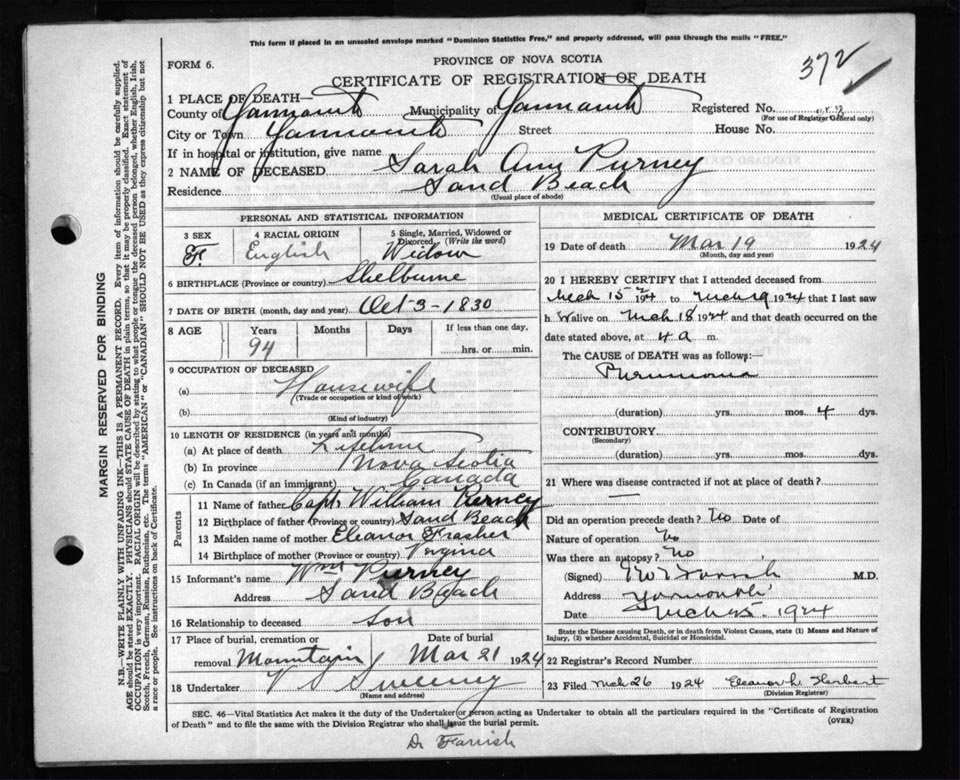 This form if placed in an unsealed envelope marked "Dominion Statistics Free," and properly addressed, will pass through the mails "FREE."
FORM 6.
PROVINCE OF NOVA SCOTIA
372
CERTIFICATE OF REGISTRATION OF DEATH
1 PLACE OF DEATH—
County of Yarmouth Municipality of Yarmouth Registered No.
(For use of Registrar General only)
City or Town Yarmouth Street House No.
If in hospital or institution, give name
2 NAME OF DECEASED Sarah Ann Purney
Residence Sand Beach
(Usual place of abode)
PERSONAL AND STATISTICAL INFORMATION
3 SEX F. 4 RACIAL ORIGIN English 5 Single, Married, Widowed or Divorced (Write the word) Widow
6 BIRTHPLACE (Province or country) Shelburne
7 DATE OF BIRTH (month, day and year) Oct 3-1830
8 AGE Years Months Days If less than one day,
94 hrs. or min.
9 OCCUPATION OF DECEASED
(a) Housewife
(Trade or occupation or kind of work)
(b)
(Kind of industry)
10 LENGTH OF RESIDENCE (in years and months)
(a) At place of death Lifetime
(b) In province Nova Scotia
(c) In Canada (if an immigrant) Canada
Parents
11 Name of father Capt. William Purney
12 Birthplace of father (Province or country) Sand Beach
13 Maiden name of mother Eleanor Frasher
14 Birthplace of mother (Province or country) Virginia
15 Informant's name Wm Purney
Address Sand Beach
16 Relationship to deceased Son
17 Place of burial, cremation or Date of burial
removal Mountain Mar 21 1924
18 Undertaker V S Sweeney
(Name and address)
MEDICAL CERTIFICATE OF DEATH
19 Date of death Mar 19 1924
(Month, day and year)
20 I HEREBY CERTIFY that I attended deceased from
Mch 15 1924 to Mch 19 1924 that I last saw
h alive on Mch 18 1924 and that death occurred on the
date stated above, at 4 a m.
The CAUSE of DEATH was as follows:—
Pneumonia
(duration) yrs. mos. 4 dys.
CONTRIBUTORY
(Secondary)
(duration) yrs. mos. dys.
21 Where was disease contracted if not at place of death?
Did an operation precede death? No Date of
Nature of operation No
Was there an autopsy? No
(Signed) Farish M.D.
Address Yarmouth
Date 1924
State the Disease causing Death, or in death from Violent Causes, state (1) Means and Nature of
Injury, (2) whether Accidental, Suicidal or Homicidal.
22 Registrar's Record Number
23 Filed Mch 26 1924 Eleanor L. Herbert
(Division Registrar)
SEC. 46—Vital Statistics Act makes it the duty of the Undertaker or person acting as Undertaker to obtain all the particulars required in the "Certificate of Registration
of Death" and to file the same with the Division Registrar who shall issue the burial permit. (OVER)
Dr Farish
MARGIN RESERVED FOR BINDING
N.B.—WRITE PLAINLY WITH UNFADING INK—THIS IS A PERMANENT RECORD. Every item of information should be carefully supplied.
AGE should be stated EXACTLY. PHYSICIANS should STATE CAUSE OF DEATH in plain terms, so that it may be properly classified. Exact statement of
OCCUPATION is very important. RACIAL ORIGIN will be described by stating to what people or tongue the deceased person belonged, whether English, Irish,
Scotch, French, German, Russian, Ruthenian, etc. The terms "AMERICAN" or "CANADIAN" SHOULD NOT BE USED as they express citizenship but not
a race or people. See instructions on back of Certificate.